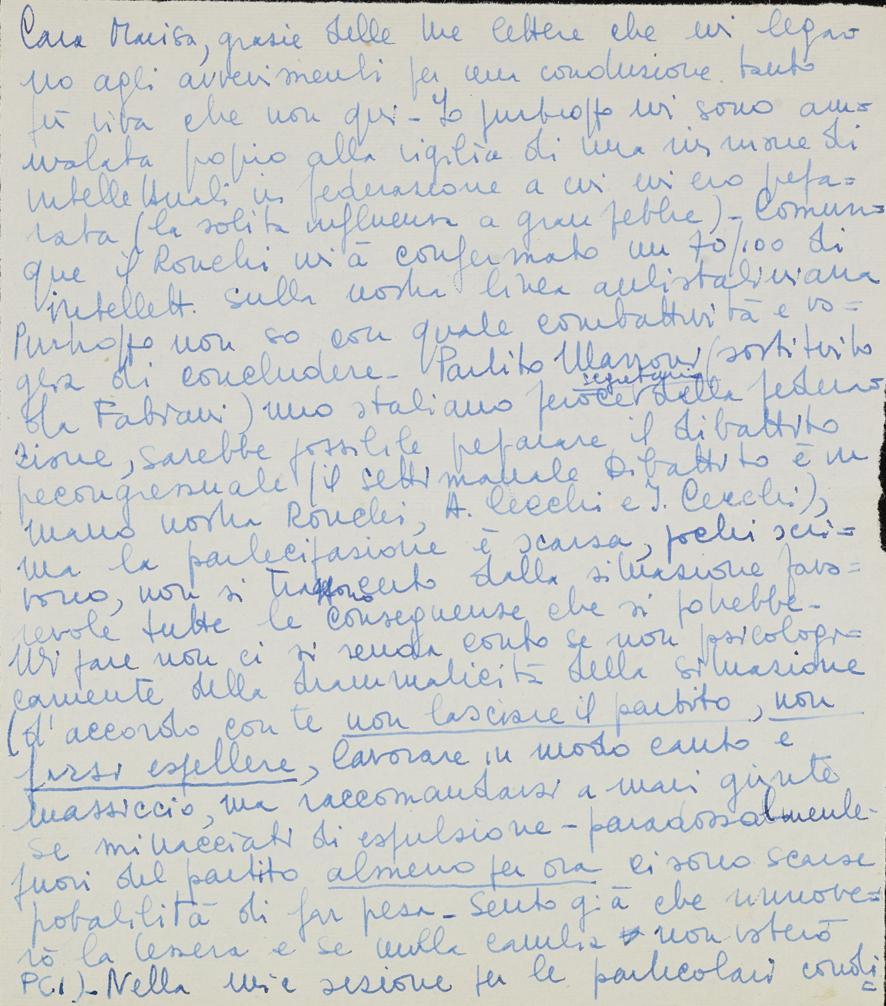 Cara Marisa, grazie delle tue lettere che mi legao
no agli avvenimenti per una conduzione tanto
più viva che non qui - Io purtroppo mi sono am=
malata popio alla vigilia di una riunione di
intellettuali in federazione a cui mi ero pepa=
rata (la solita influenza a gran febbre) - Comun=
que il Ronchi mi à confermato un 70/100 di
intellett. sulla nostra linea antistaliniana
Purtroppo non so con quale combattività e vo=
glia di concludere - Partito Mazzoni (sostituito
da Fabiani) uno staliano feroce segretario della federa
zione, sarebbe possibile peparare il dibattito
pecongressuale (il settimanale Dibattito è in
mano nostra Ronchi, A. Cecchi e I. Cecchi),
ma la partecipazione è scarsa, pochi scri=
vono, non si traggono dalla situazione favo=
revole tutte le conseguenze che si potrebbe-
Mi pare non ci si renda conto se non psicologi=
camente della drammaticità della situazione
(d'accordo con te non lasciare il partito, non
farsi espellere, lavorare in modo cauto e
massiccio, ma raccomandarsi a mani giunte
se minacciati di espulsione - paradossalmente
fuori del partito almeno per ora ci sono scarse
pobalilità di far pesa - Sento già che rinnove=
rò la tessera e se nulla cambia non voterò
PCI) - Nella mia sezione per le particolari condi